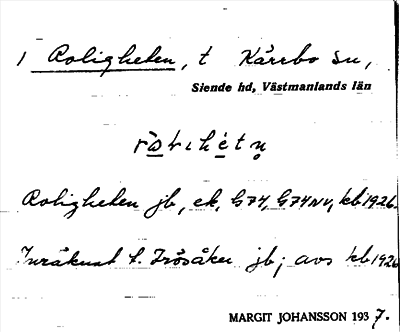 1 Roligheten, t Kärrbo sn,
Siende hd, Västmanlands län
Roligheten jb, ek, G74, G74NV, kb 1926.
Inräknat t. Frösåker jb; avs kb 1926
MARGIT JOHANSSON 1937.